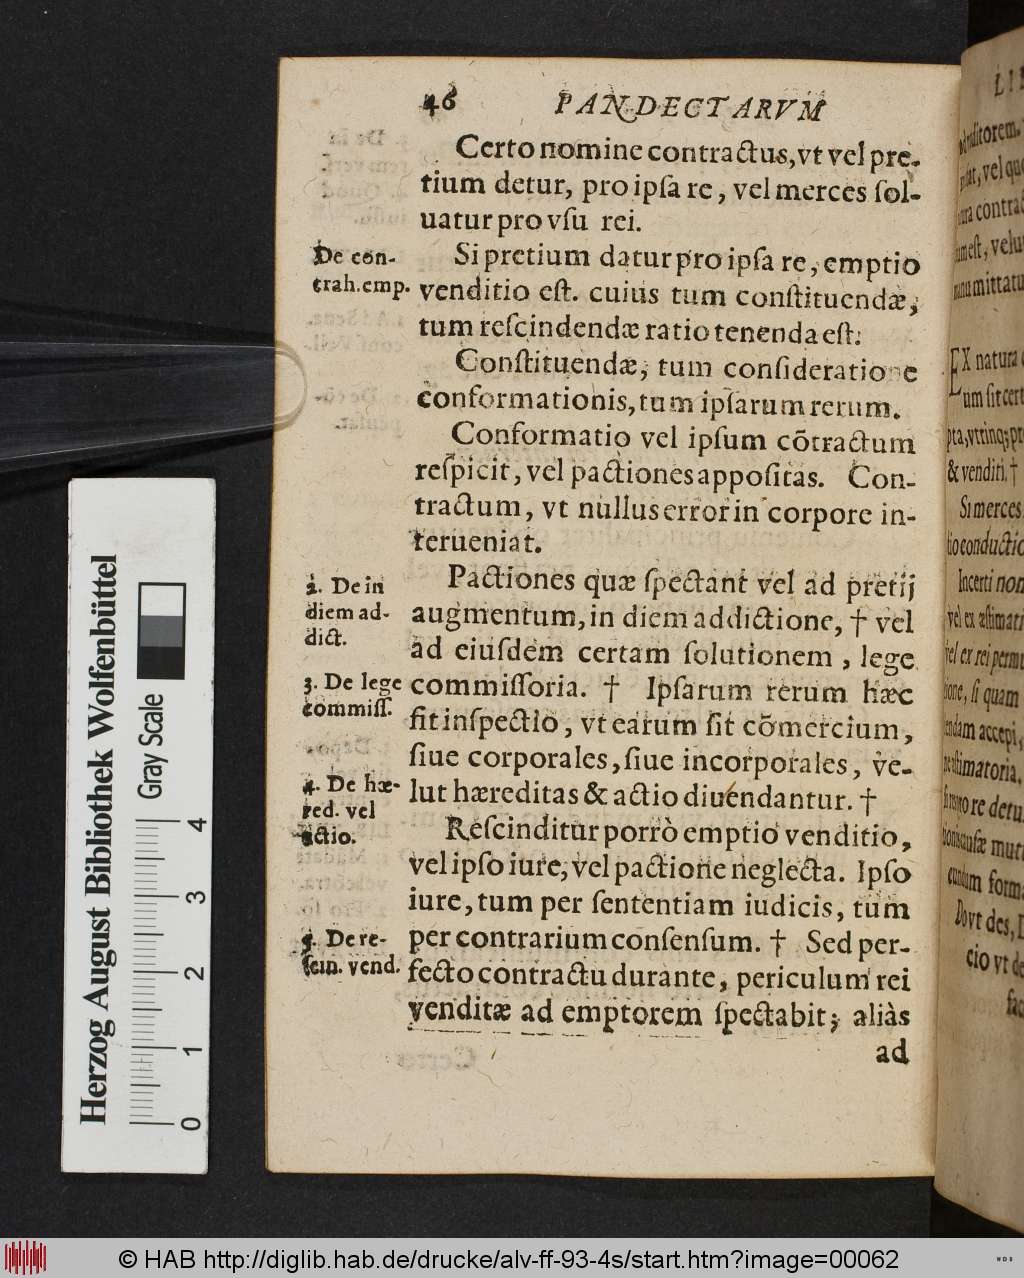 46 PANDECTARVM
Certo nomine contractus, vt vel pre-
tium detur, pro ipſa re, vel merces ſol-
uatur pro vſu rei.
De con-
trah. emp.
Si pretium datur pro ipſa re, emptio
venditio eſt. cuius tum conſtituendæ,
tum reſcindendæ ratio tenenda eſt.
Conſtituendæ, tum conſideratione
conformationis, tum ipſarum rerum.
Conformatio vel ipſum cōtractum
reſpicit, vel pactiones appoſitas. Con-
tractum, vt nullus error in corpore in-
terueniat.
2. De in
diem ad-
dict.
Pactiones quæ ſpectant vel ad pretij
augmentum, in diem addictione, † vel
ad eiuſdem certam ſolutionem, lege
3. De lege
commiſſ.
commiſſoria. † Ipſarum rerum hæc
fit inſpectio, vt earum ſit cōmercium,
ſiue corporales, ſiue incorporales, ve-
4. De hæ-
red. vel
actio.
lut hæreditas & actio diuendantur. †
Reſcinditur porrò emptio venditio,
vel ipſo iure, vel pactione neglecta. Ipſo
iure, tum per ſententiam iudicis, tum
5. De re-
ſcin. vend.
per contrarium conſenſum. † Sed per-
fecto contractu durante, periculum rei
venditæ ad emptorem ſpectabit; aliàs
ad
EX natura
um ſit cert
& venditi. †
Si merces
tio conductio
Incerti nom
vel ex æſtimati
vel ex rei permu
tione, ſi quam
endam accepi,
æſtimatoria.
cio vt de
fac
Herzog August Bibliothek Wolfenbüttel
Gray Scale
0 1 2 3 4
© HAB http://diglib.hab.de/drucke/alv-ff-93-4s/start.htm?image=00062